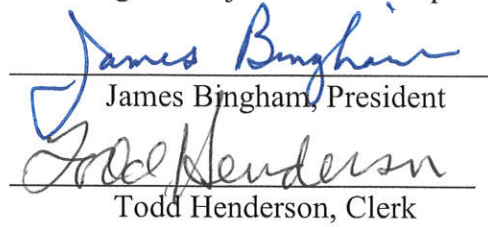 James Bingham
James Bingham, President
Todd Henderson
Todd Henderson, Clerk